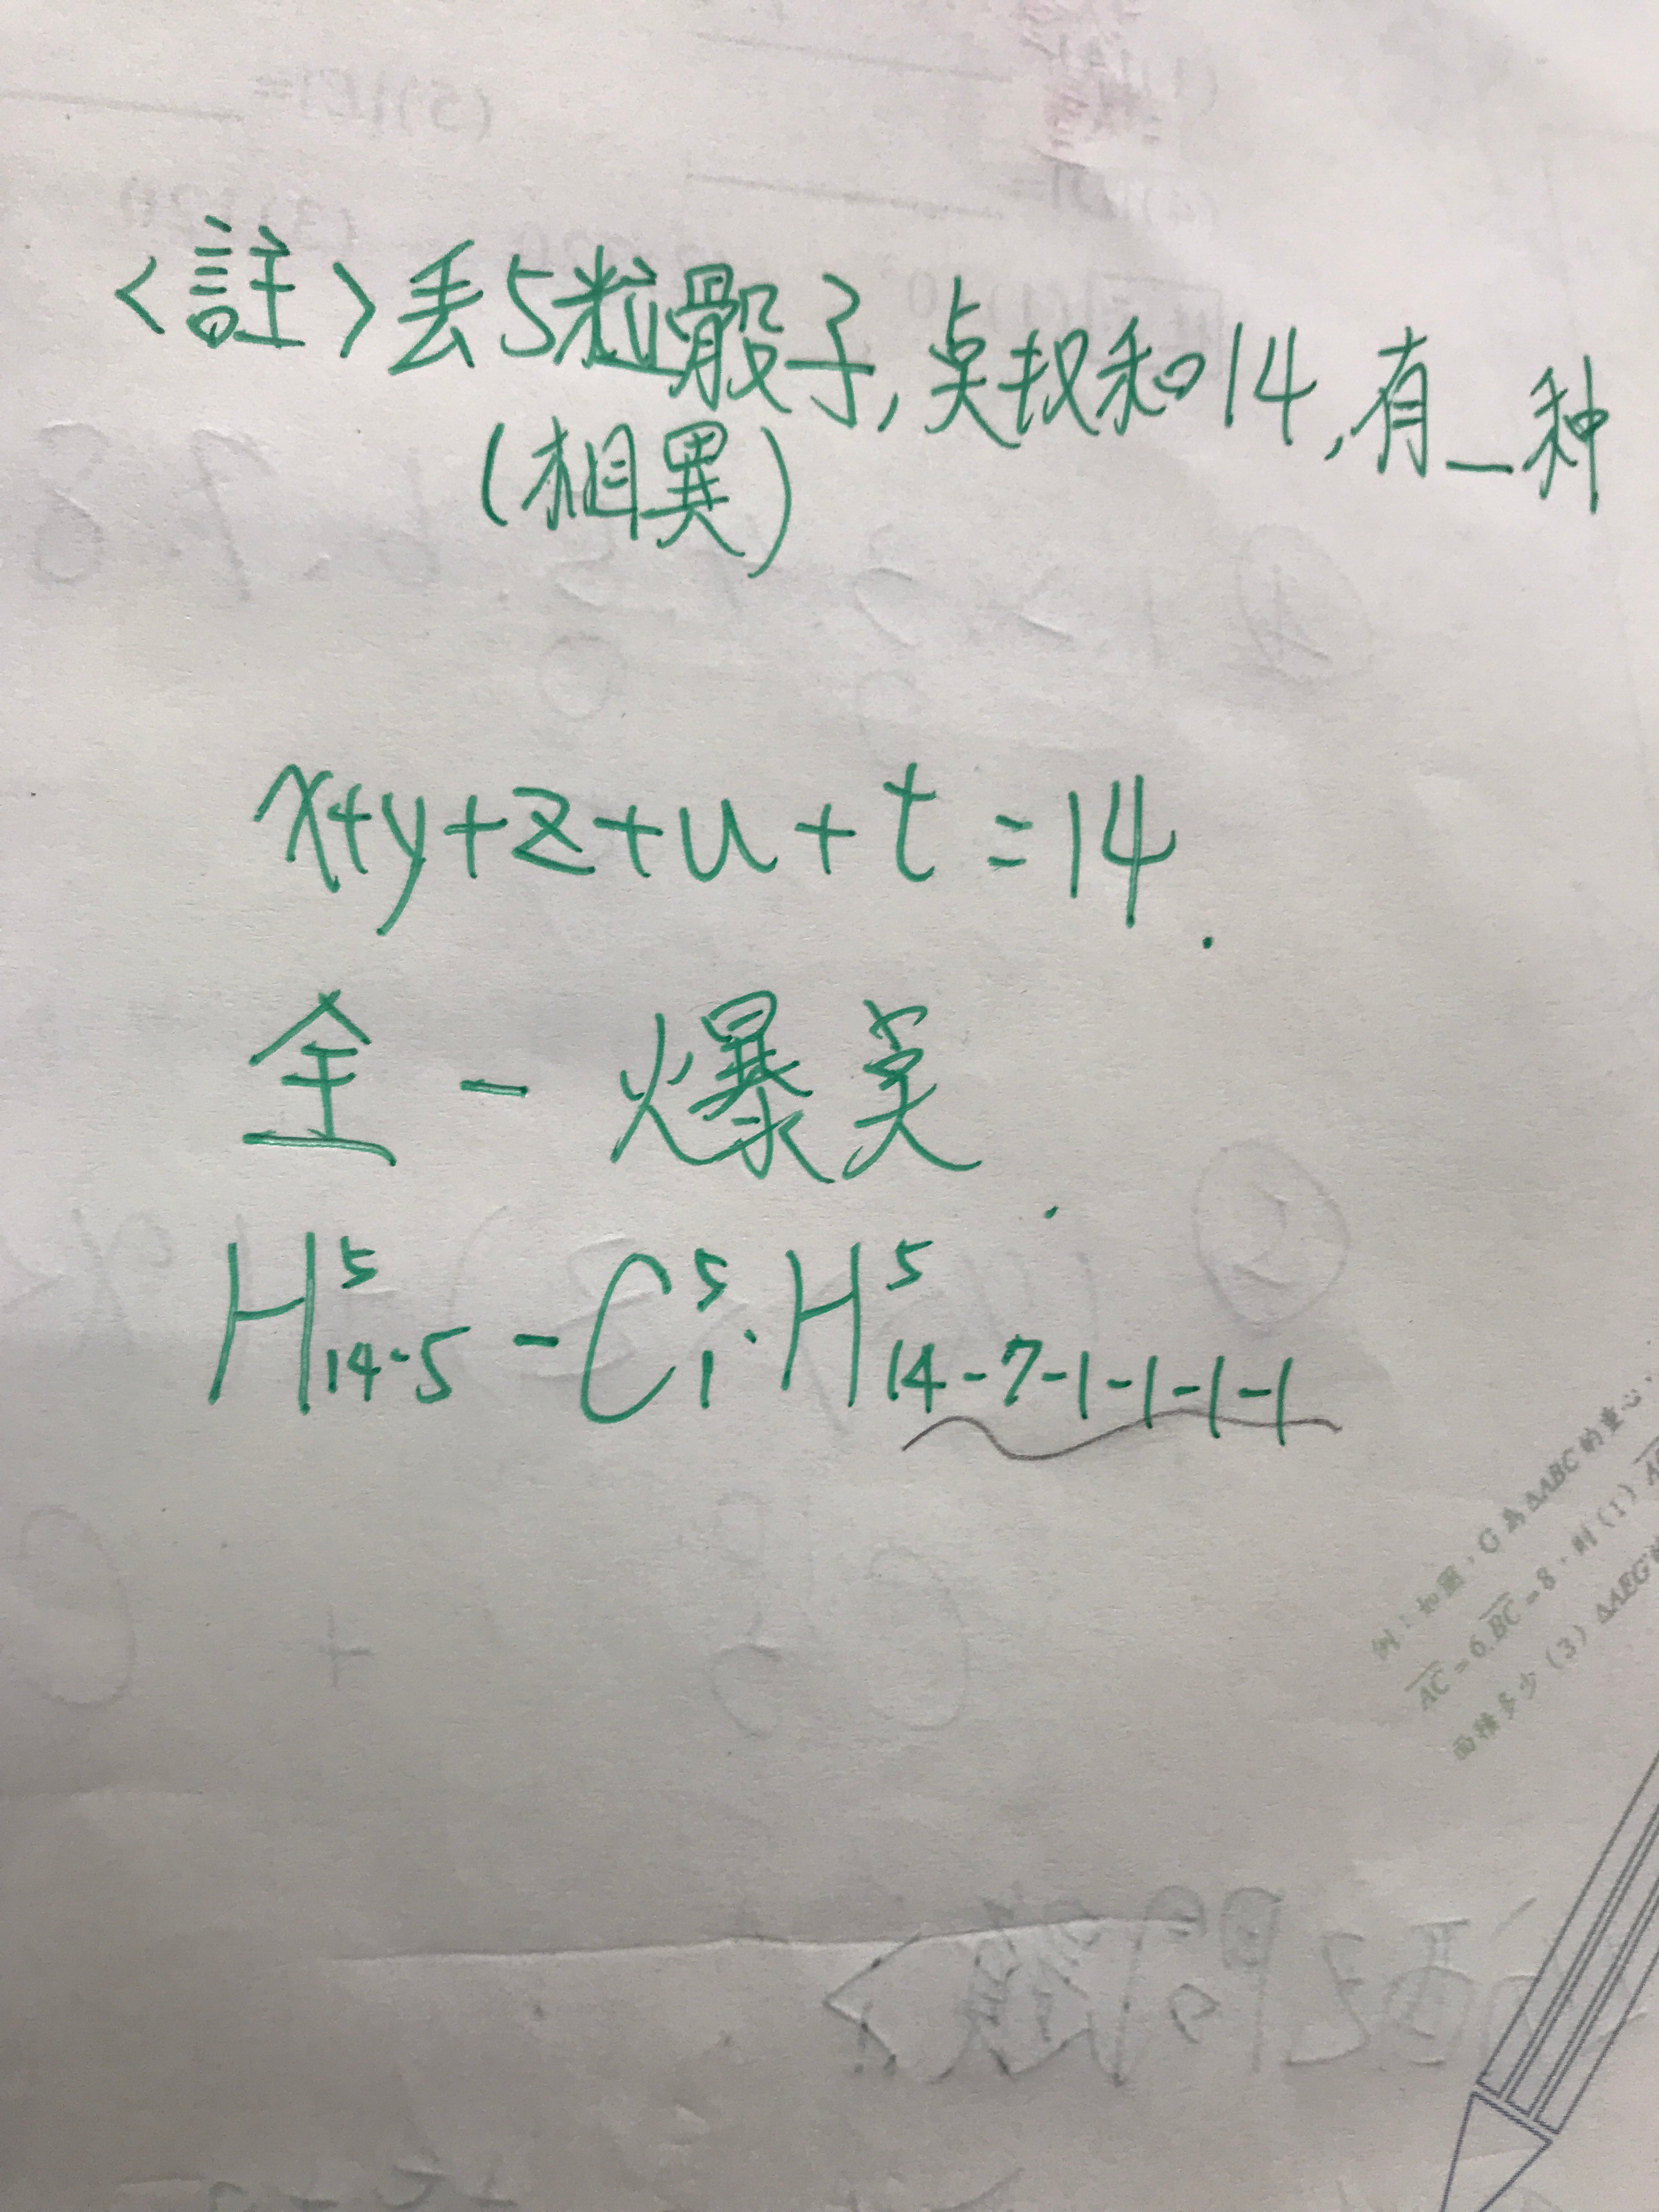 <註>丟5粒骰子,点数和14,有_种
(相異)
x+y+z+u+t=14.
全-爆点.
H⁵₁₄₋₅-C⁵₁·H⁵₁₄₋₇₋₁₋₁₋₁₋₁
例:如圖,G為△ABC的重心,
AC=6,BC=8,則(1)
面積多少(3)△AEG